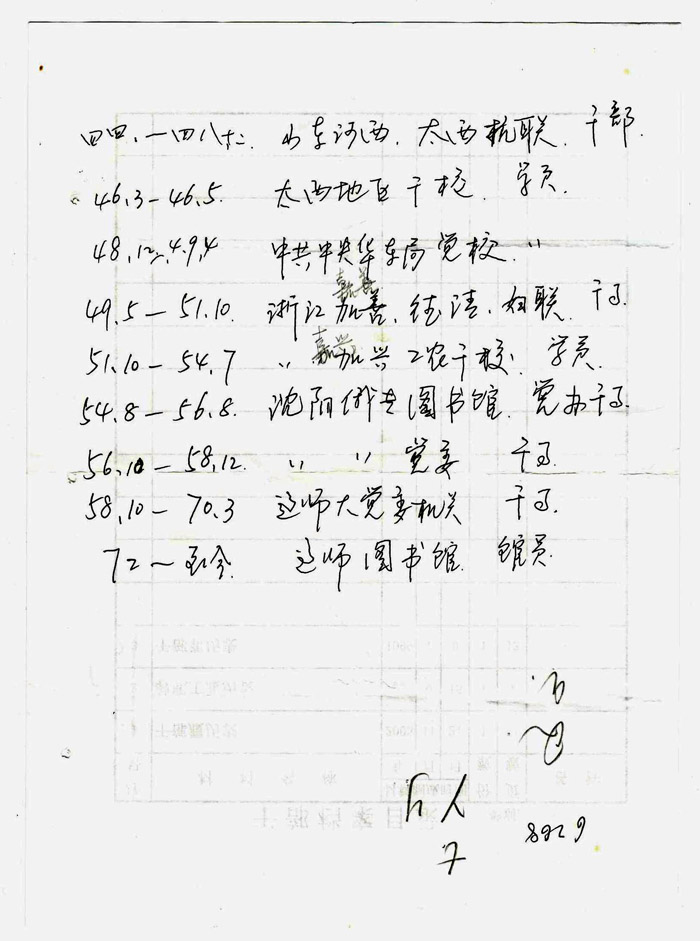 四四.一四八.十二 山东河西.太西抗联.干部.
46.3－46.5. 太西地区干校. 学员.
48.12－49.4 中共中央华东局党校.〃
嘉善
49.5－51.10. 浙江加善.德清.妇联.干了.
嘉兴
51.10－54.7 〃 加兴工农干校. 学员.
54.8－56.8. 沈阳俄专图书馆.党办干了.
56.10－58.12. 〃 〃 党委 干了.
58.10－70.3 辽师大党委机关 干了.
72～至今. 辽师图书馆. 馆员.